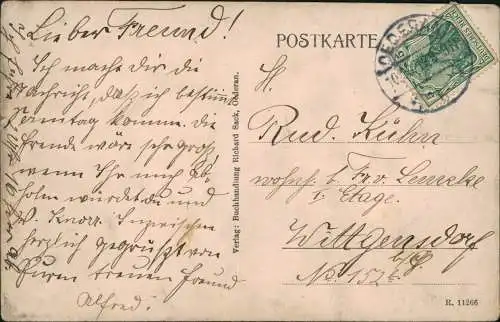 Lieber Freund!
Ich mache dir die
Nachricht, daß ich bestimmt
Sonntag komme. Die
Freude wäre sehr groß
wenn Ihr mich ab-
holen würdet du und
W. Knorr. Inzwischen
herzlich gegrüßt von
Eurem treuen Freund
Alfred.
Verlag: Buchhandlung Richard Sack, Oederan.
POSTKARTE
H.
Rud. Kühn
wohnh. b. Fr. v.
I. Etage.
Wittgensdorf
No. 152
R. 11266